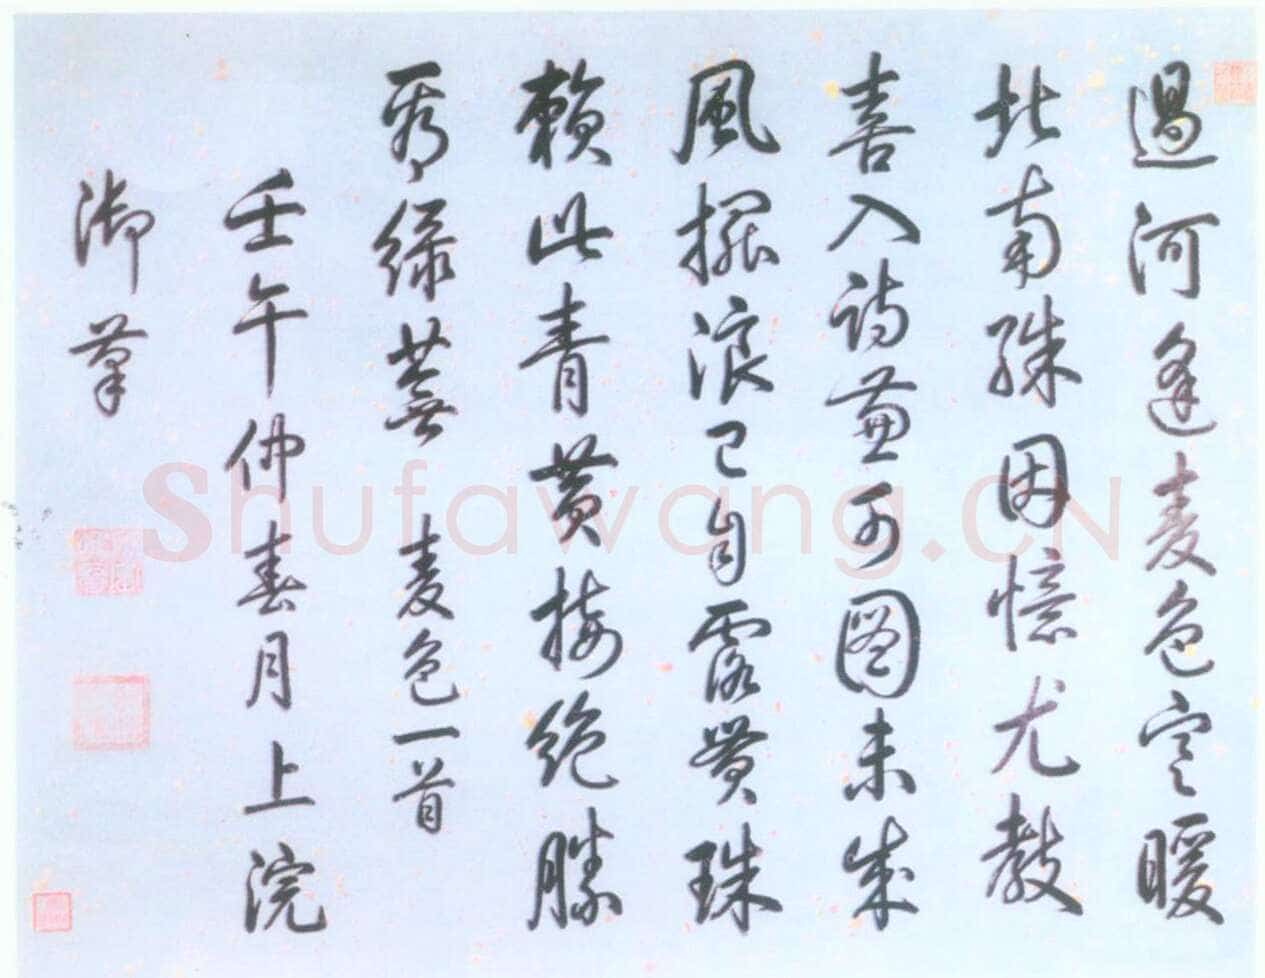 過河逢麦色寒暖
北南殊因憶尤教
喜入詩兼可圖未成
風擺浪已自露貫珠
賴此青黄接絶勝
秀緑蕪 麦色一首
壬午仲春月上浣
御筆
Shufawang.CN